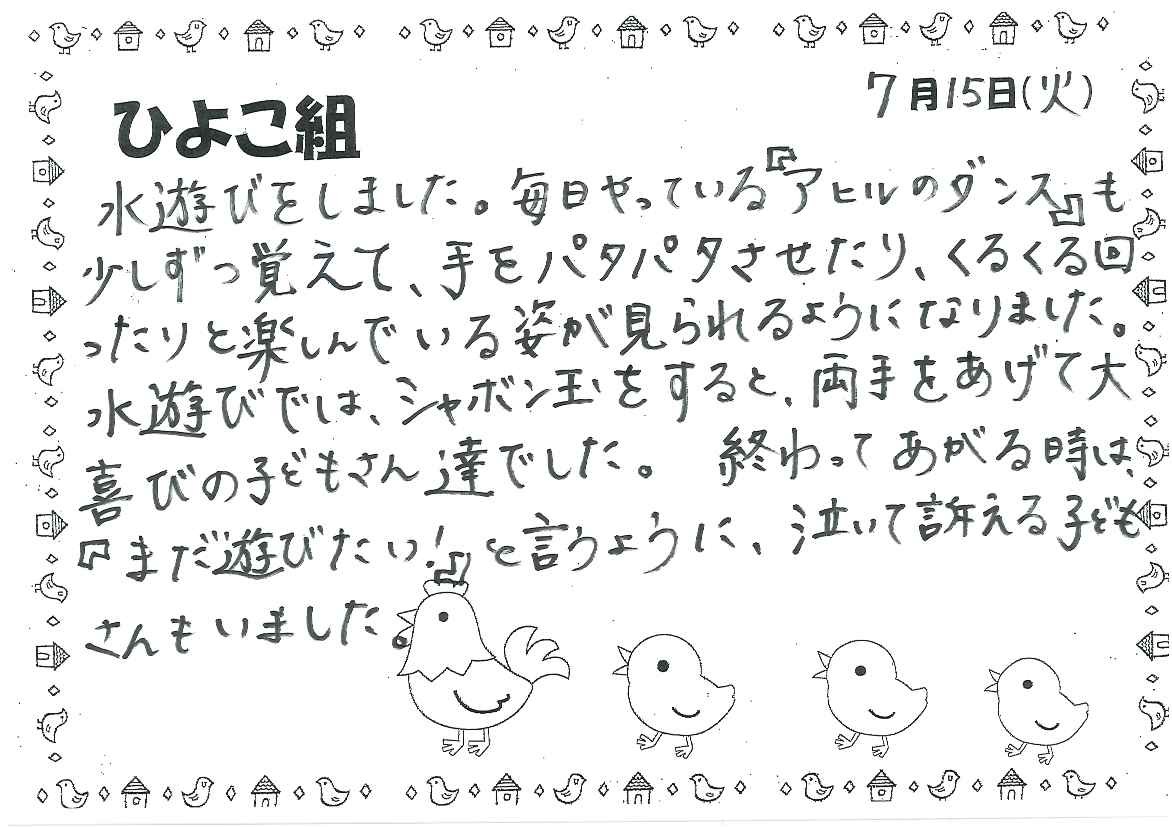 7月15日(火)
ひよこ組
水遊びをしました。毎日やっている『アヒルのダンス』も
少しずつ覚えて、手をパタパタさせたり、くるくる回
ったりと楽しんでいる姿が見られるようになりました。
水遊びでは、シャボン玉をすると、両手をあげて大
喜びの子どもさん達でした。 終わってあがる時は、
『まだ遊びたい!』と言うように、泣いて訴える子ども
さんもいました。